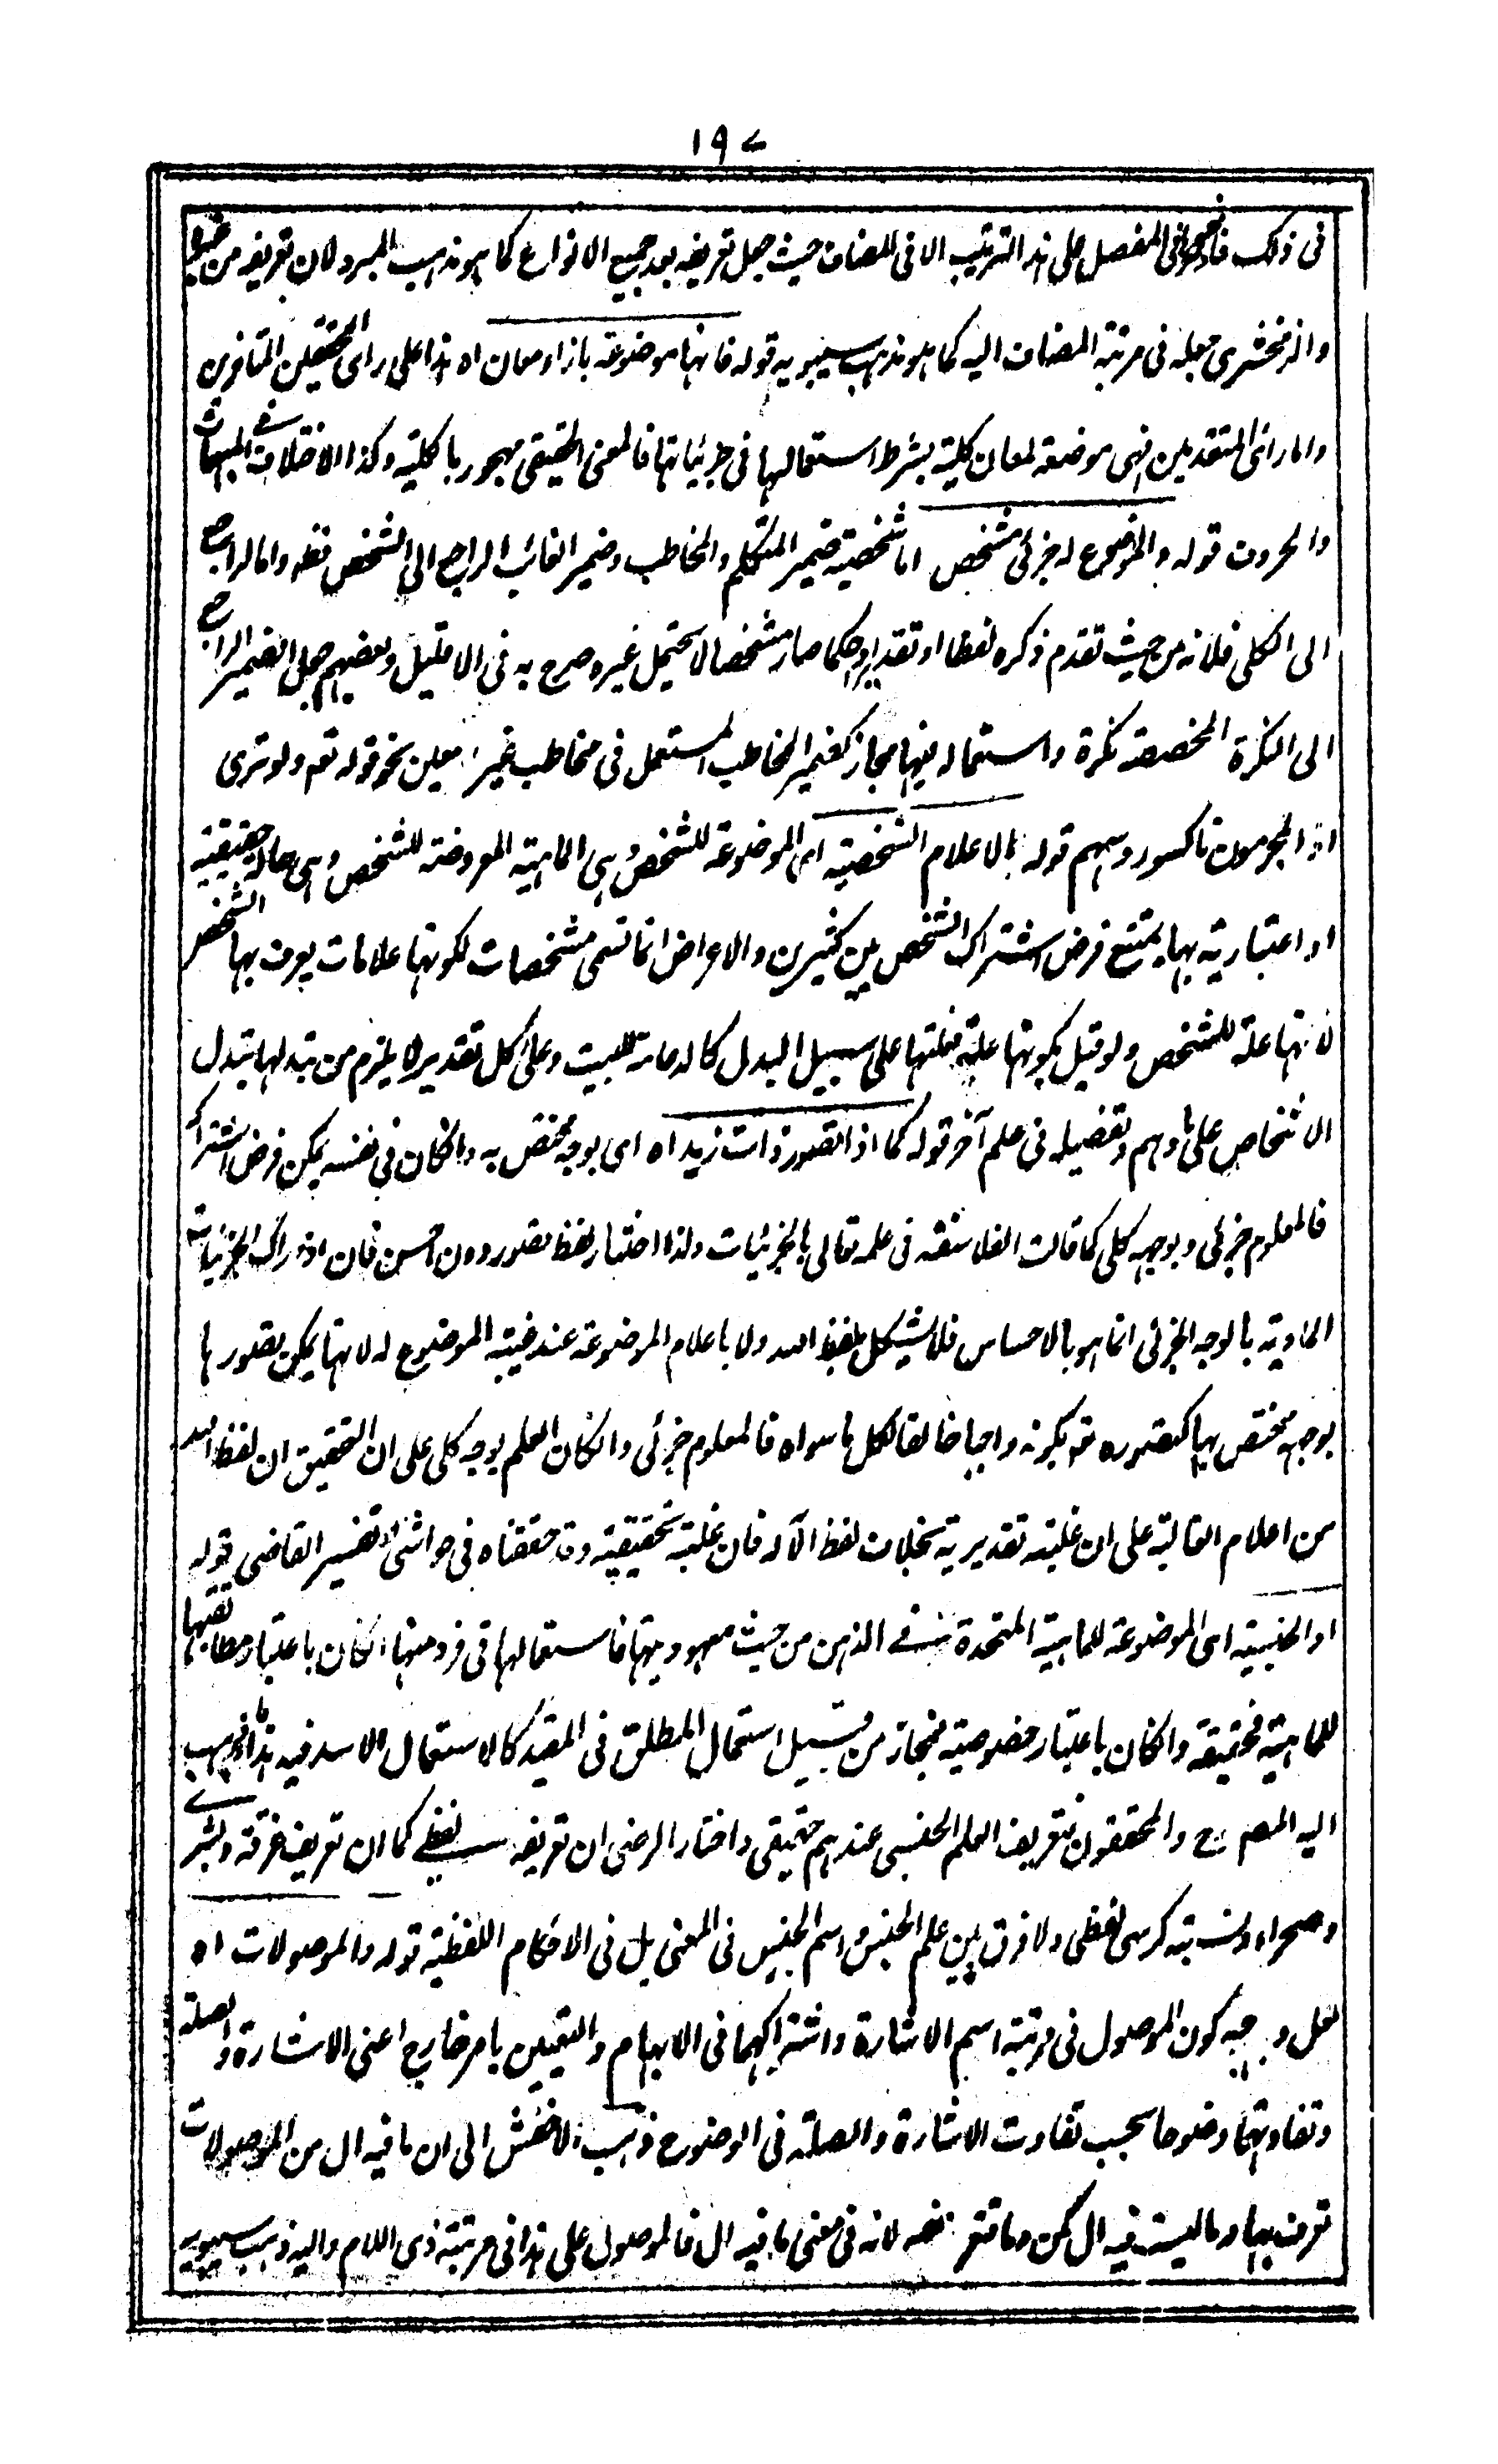 ١٩٧
فى ذلك فالصحيح فى المفصل على هذا الترتيب الا فى المضاف حيث جعل تعريفه بعد جميع الانواع كما هو مذهب المبرد لان تعريفه من غيرها
والزمخشرى جعله فى مرتبة المضاف اليه كما هو مذهب سيبويه قوله فانها موضوعة بازاء معان اه هذا على راى المحققين المتاخرين
واما راى المتقدمين فهى موضوعة لمعان كلية بشرط استعمالها فى جزئياتها فالمعنى الحقيقى مهجور بالكلية وكذا الاختلاف فى المبهمات
والحروف قوله والموضوع له جزئى مشخص اما شخصية ضمير المتكلم والمخاطب وضمير الغائب الراجع الى الشخص فظ واما الراجع
الى الكلى فلانه من حيث تقدم ذكره لفظا او تقديرا وحكما صار مشخصا لا يحتمل غيره صرح به فى الاقليل وبعضهم جعل الضمير الراجع
الى النكرة المخصصة نكرة واستعماله فيها مجاز كضمير المخاطب المستعمل فى مخاطب غير معين نحو قوله تع ولو ترى
اذ المجرمون ناكسو رؤسهم قوله بالاعلام الشخصية اى الموضوعة للشخص وهى الماهية المعروضة للشخص وهى حالة حقيقية
او اعتبارية بها يمتنع فرض اشتراك الشخص بين كثيرين والاعراض انما تسمى مشخصات لكونها علامات يعرف بها الشخص
لانها علة للشخص ولو قيل بكونها علة فعلتها على سبيل البدل كالدعامة للبيت وعلى كل تقدير لا يلزم من تبدلها تبدل
الاشخاص على ما وهم وتفضيله فى علم آخر قوله كما اذا تصور ذات زيد اه اى بوجه مختص به وان كان فى نفسه يمكن فرض اشتراكه
فالمعلوم جزئى وبوجه كلى كما قالت الفلاسفة فى علمه تعالى بالجزئيات ولذا اختار لفظ تصور دون احس فان ادراك الجزئيات
المادية بالوجه الجزئى انما هو بالاحساس فلا يشكل بلفظ الله ولا باعلام الموضوعة عند غيبة الموضوع له لانها يمكن تصورها
بوجه مختص بها كتصوره تع بكونه واجبا خالقا لكل ما سواه فالمعلوم جزئى وان كان العلم بوجه كلى على ان التحقيق ان لفظ الله
من اعلام الغالبة على ان غلبته تقديرية بخلاف لفظ الآله فان غلبته تحقيقية وقد حققناه فى حواشى تفسير القاضى قوله
او الجنسية اى الموضوعة للماهية المتحدة فى الذهن من حيث معهوديتها فاستعمالها فى فرد منها ان كان باعتبار مطابقتها
للماهية فحقيقة وان كان باعتبار خصوصيته فمجاز من قبيل استعمال المطلق فى المقيد كالاستعمال الاسد فيه هذا ما ذهب
اليه المصرح والمحققون فتعريف العلم الجنسى عندهم حقيقى واختار الرضى ان تعريفه لفظى كما ان تعريف غرفة وبشرى
وصحراء ونسبة كرسى لفظى ولا فرق بين علم الجنس واسم الجنس فى المعنى بل فى الاحكام اللفظية قوله والموصولات اه
لعل وجه كون الموصول فى مرتبة اسم الاشارة واشتراكهما فى الابهام والتعيين بامر خارج اعنى الاشارة والصلة
وتفاوتهما وضوحا بحسب تفاوت الاشارة والصلة فى الوضوح ذهب الاخفش الى ان ما فيه ال من الموصولات
تعرف بها وما ليست فيه ال كمن وما فتعرفه لانه فى معنى ما فيه ال فالموصول على هذا فى مرتبة ذى اللام واليه ذهب سيبويه